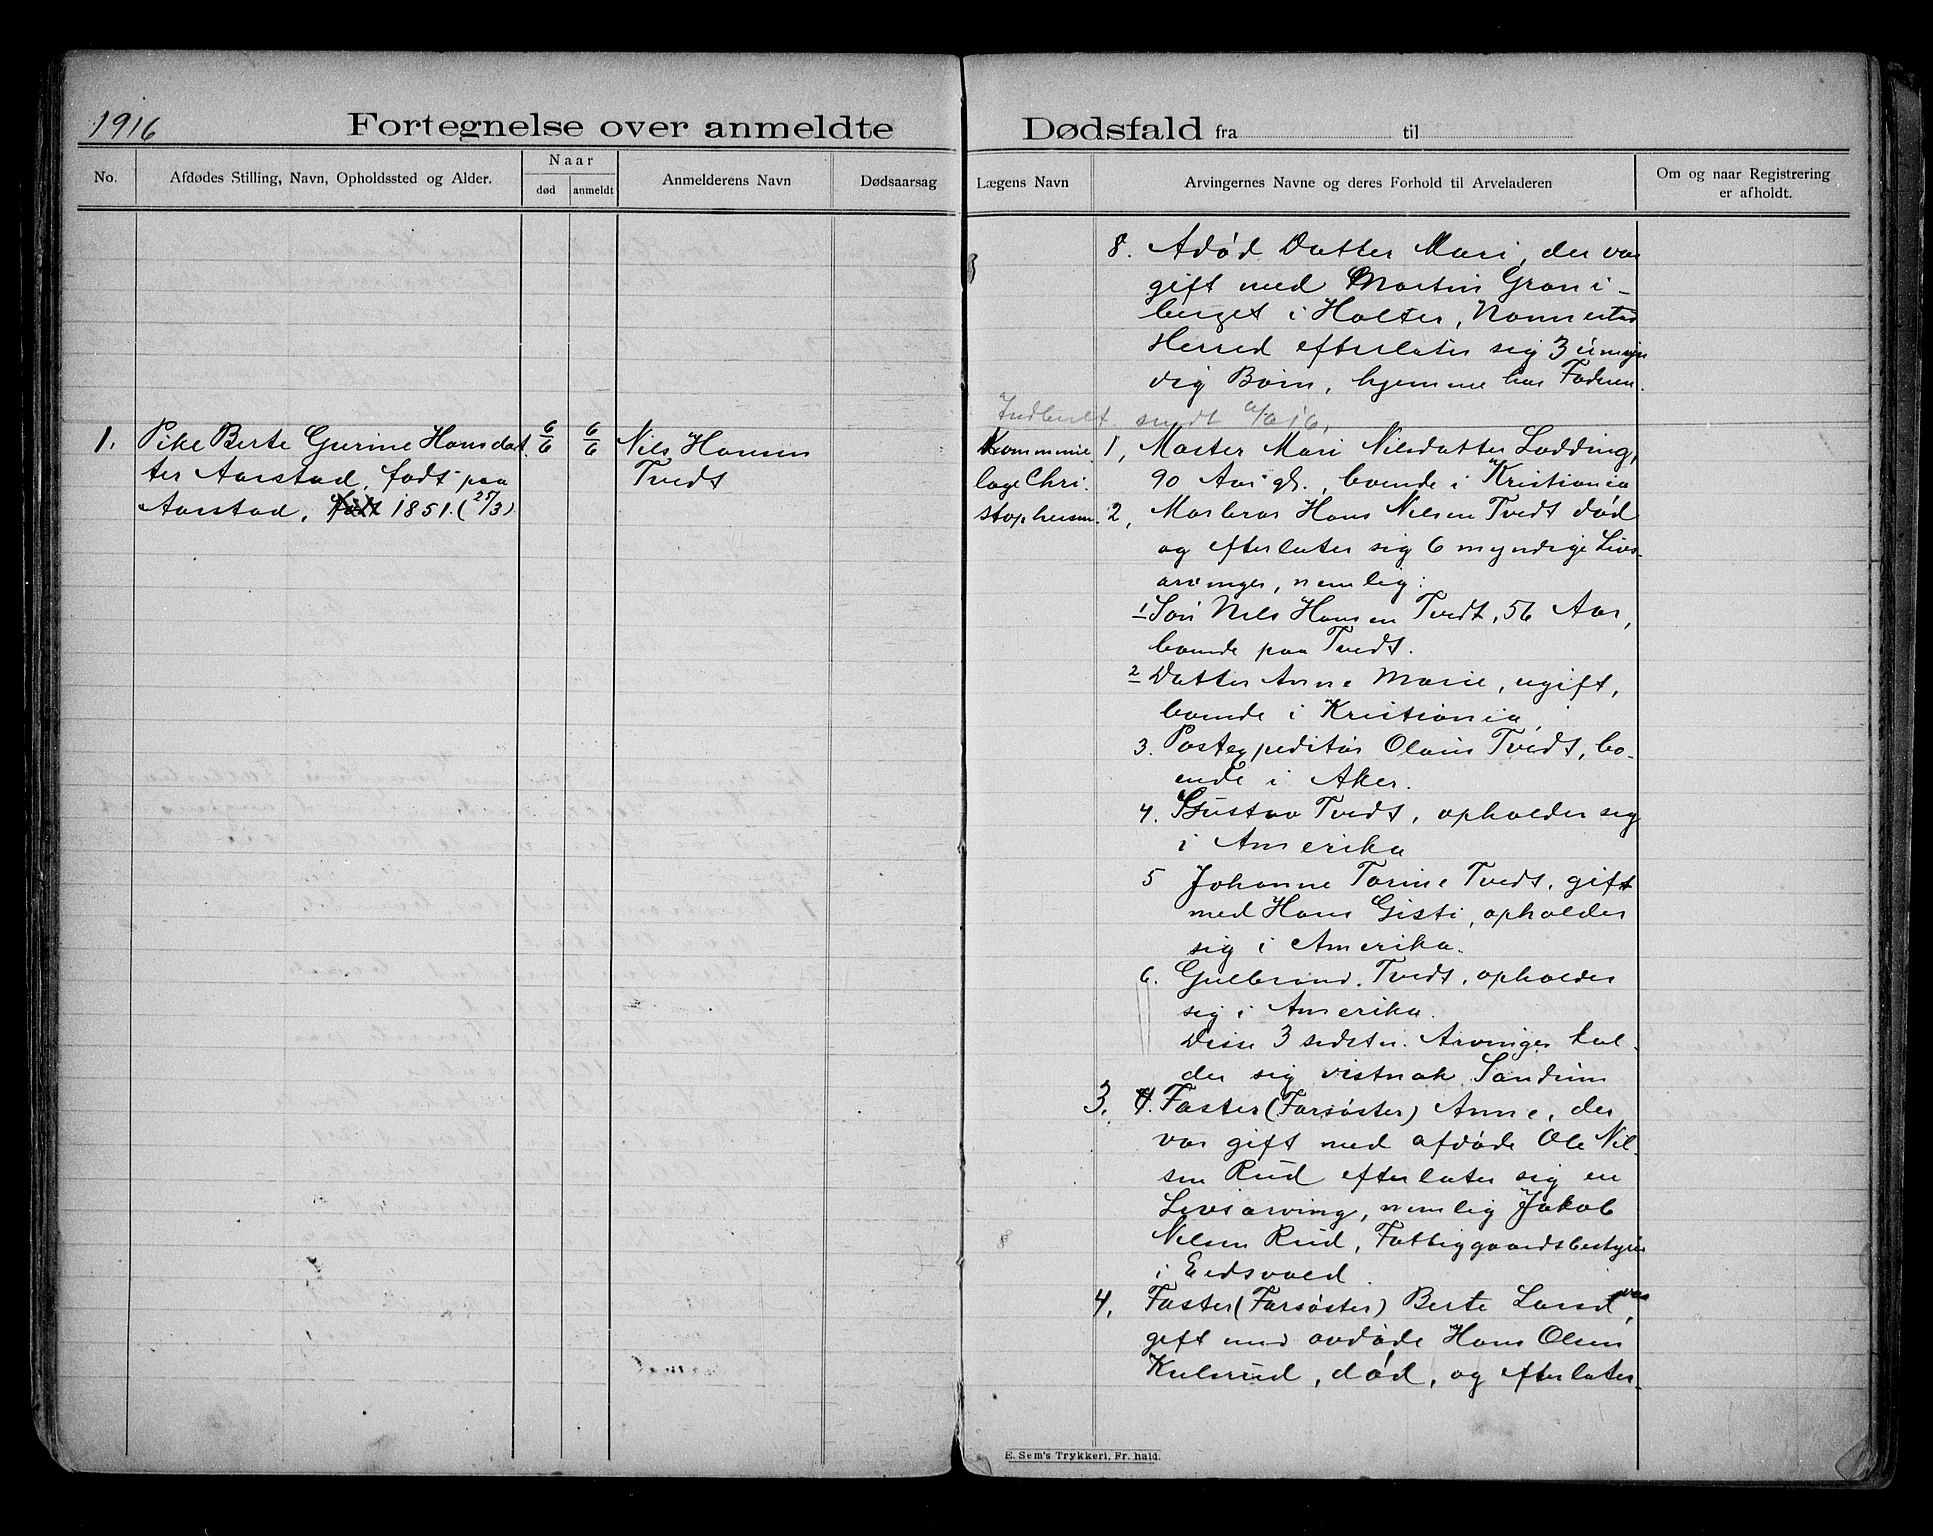 1916
Fortegnelse over anmeldte Dødsfald fra til
No.
Afdødes Stilling, Navn, Opholdssted og Alder.
Naar
død
anmeldt
Anmelderens Navn
Dødsaarsag
Lægens Navn
Arvingernes Navne og deres Forhold til Arveladeren
Om og naar Registrering
er afholdt.
8. Adød Datter Mari, der var
gift med Martin Grani-
berget i Holter, Nannestad
Herred efterlater sig 3 umyn
dig Børn, hjemme hos Faderen.
sendt
1. Pike Berte Gurine Hansdat
ter Aarstad, født paa
Aarstad, født 1851. (25/3)
6/6
6/6
Nils Hansen
Tvedt
Kommune
læge Chri-
stophersen.
1, Moster Mari Nilsdatter Lodding,
90 Aar gl., boende i Kristiania
2, Morbror Hans Nilsen Tvedt død
og efterlater sig 6 myndige Livs
arvinger, nemlig:
1 Søn Nils Hansen Tvedt, 56 Aar,
boende paa Tvedt.
2 Datter Anne Marie, ugift,
boende i Kristiania,
3. Postexpeditør Olavus Tvedt, bo-
ende i Aker.
4. Gustav Tvedt, opholder sig
i Amerika
5 Johanne Torine Tvedt, gift
med Hans Gisti, opholder
sig i Amerika.
6. Gulbrand Tvedt, opholder
sig i Amerika.
Disse 3 sidstn. Arvinger kal-
der sig vistnok Sandum
3. 4. Faster (Farsøster) Anne, der
var gift med afdøde Ole Nil-
sen Rud efterlater sig en
Livsarving, nemlig Jakob
Nilsen Rud, Fattiggaardsbestyrer
i Eidsvold.
4. Faster (Farsøster) Berte Lund, var
gift med avdøde Hans Olsen
Kulsrud, død, og efterlater
E. Sem's Trykkeri, Fr. hald.